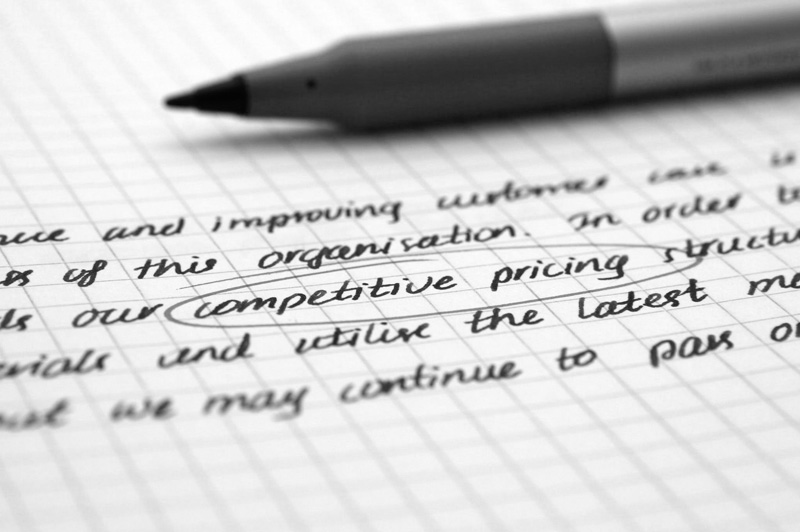 and improving customer care is
of this organisation. In order to
our competitive pricing
and utilise the latest
we may continue to pass